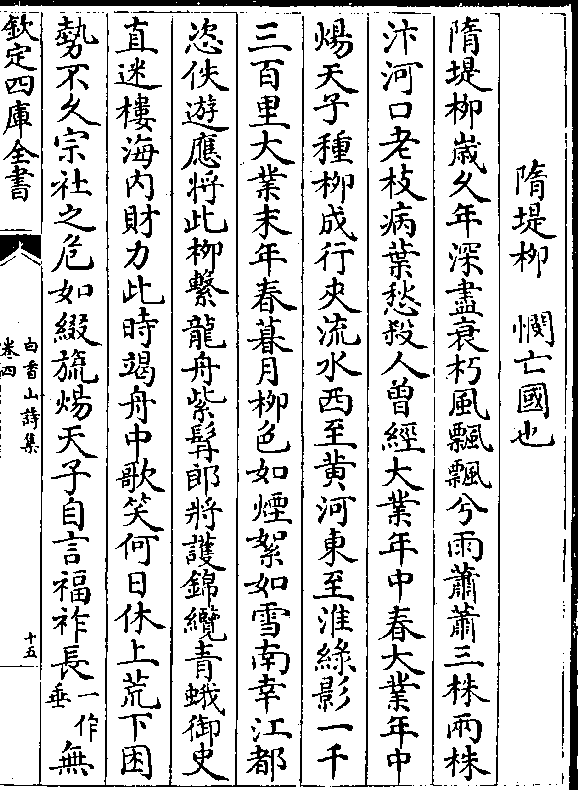 隋堤柳　憫亡國也
隋堤柳歲久年深盡衰朽風飄飄兮雨蕭蕭三株兩株
汴河口老枝病葉愁殺人曽經大業年中春大業年中
煬天子種柳成行夾流水西至黄河東至淮綠影一千
三百里大業末年春暮月柳色如煙絮如雪南幸江都
恣佚遊應將此柳繫龍舟紫髯郎將護錦纜青蛾御史
直迷樓海内財力此時竭舟中歌笑何日休上荒下困
勢不久宗社之危如綴旒煬天子自言福祚長一作垂無
欽定四庫全書
白香山詩集
卷四
十五